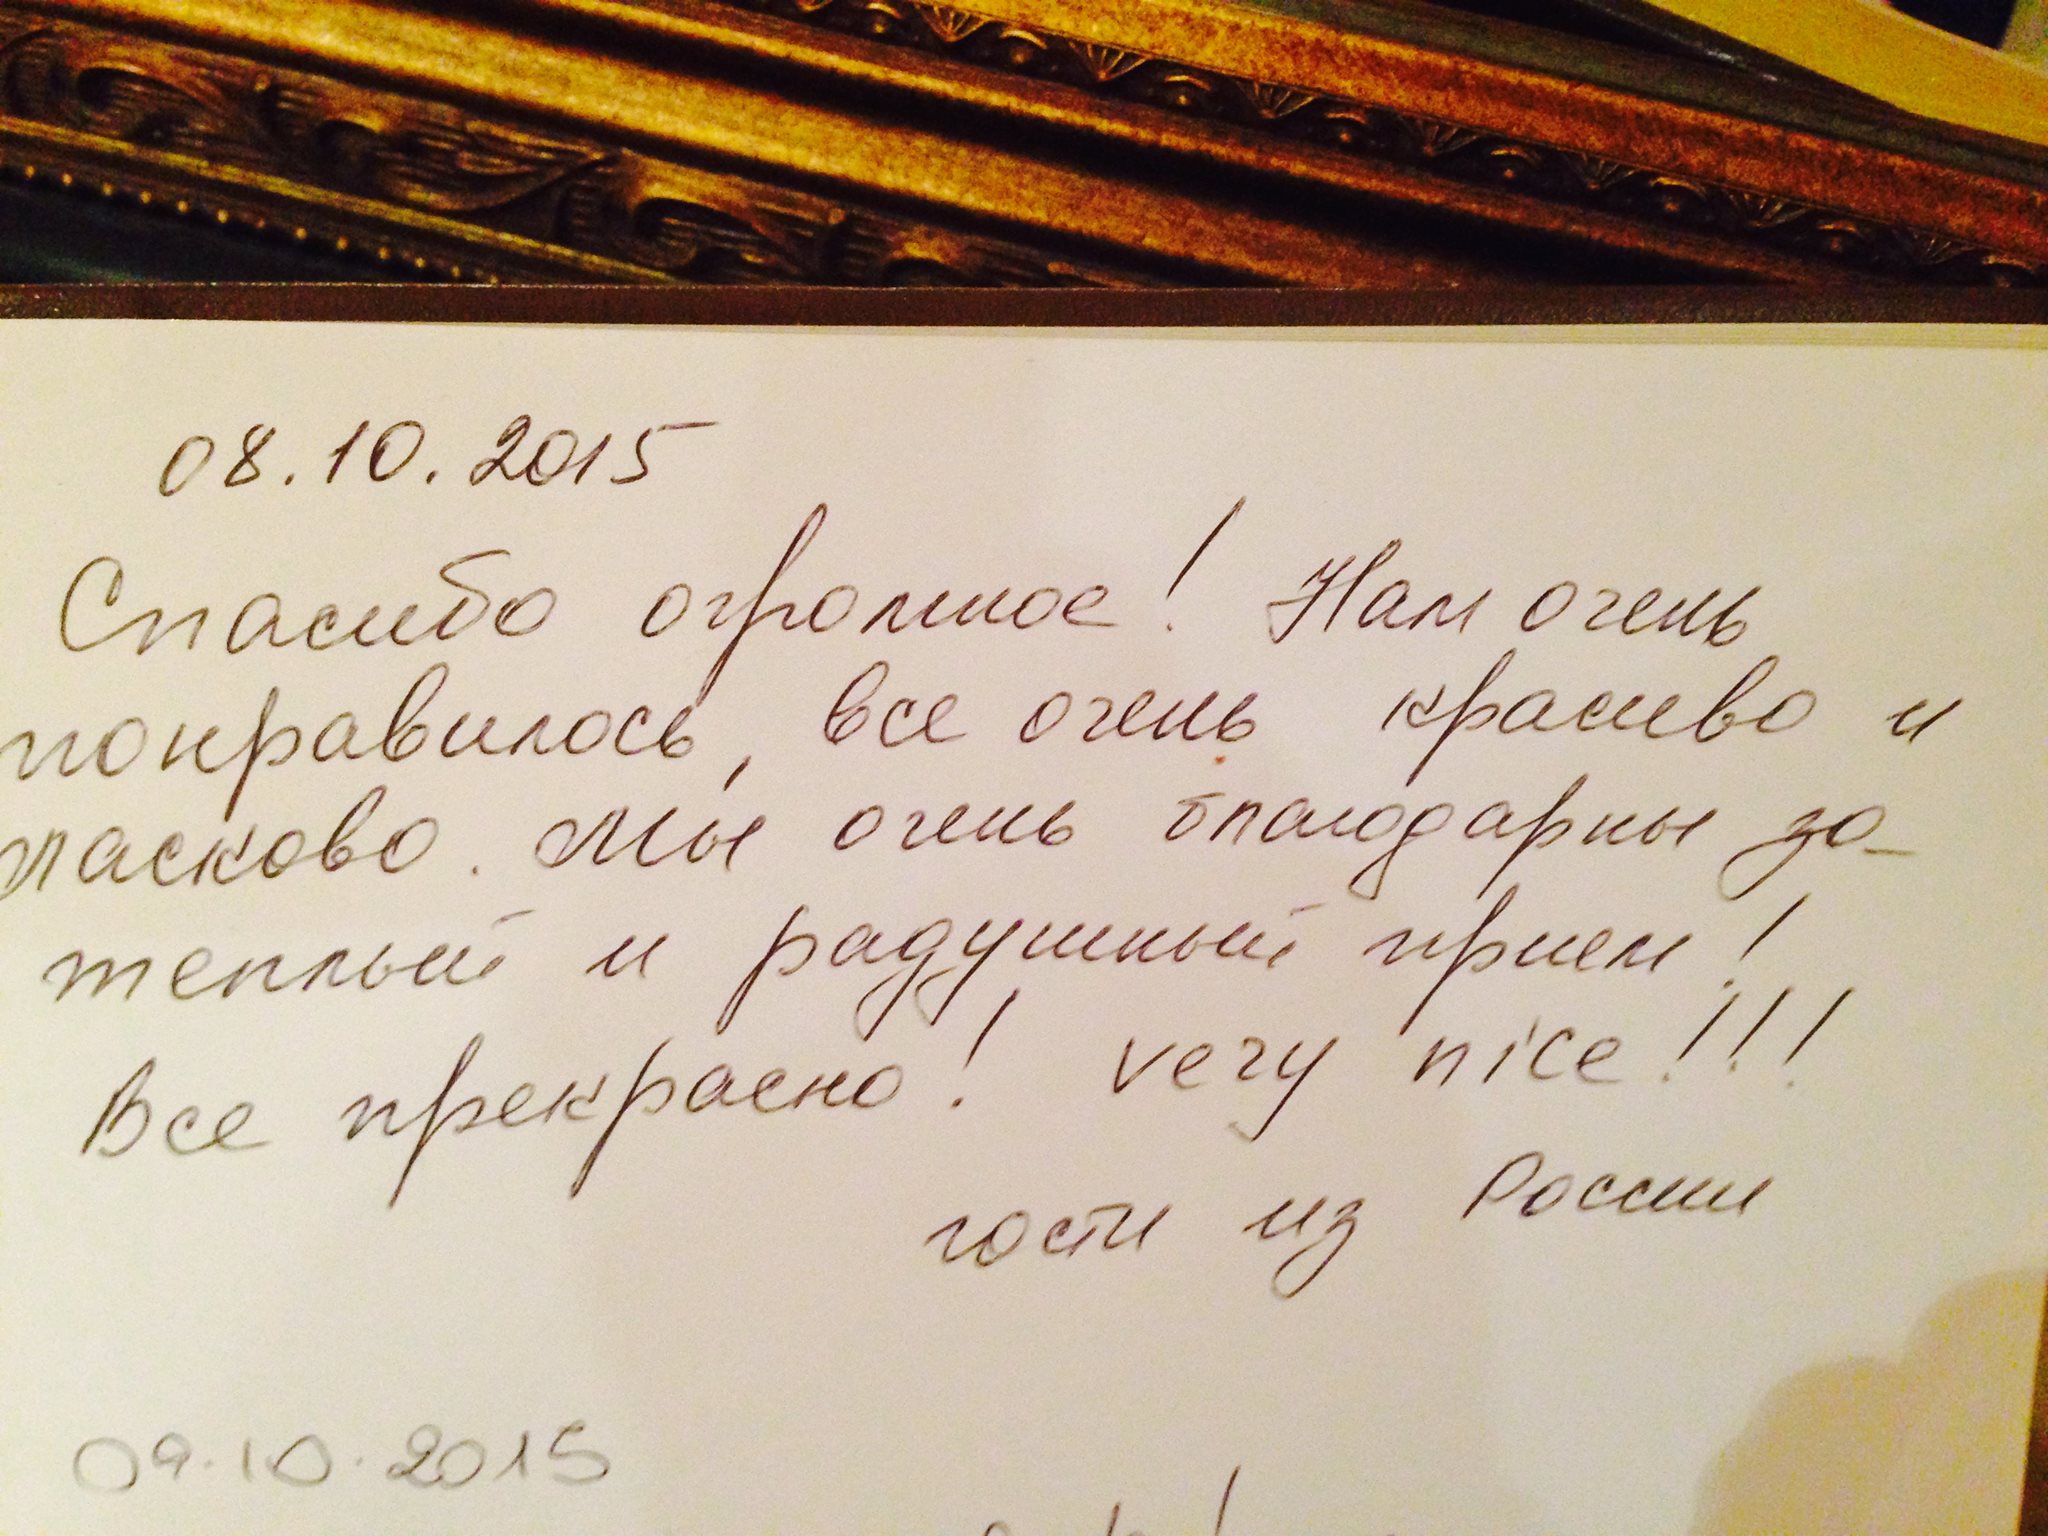 08.10.2015
Спасибо огромное! Нам очень
понравилось, все очень красиво и
ласково. Мы очень благодарны за-
теплый и радушный прием!
Все прекрасно! very nice!!!
гости из России
09.10.2015